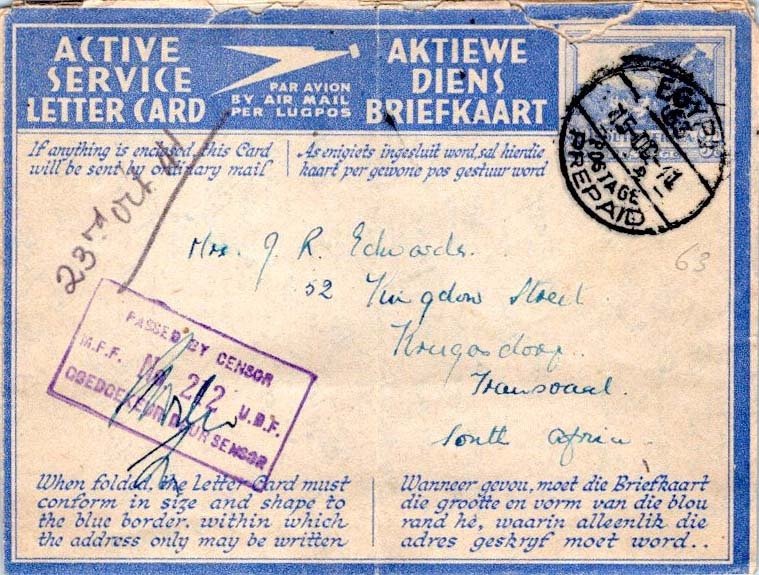 ACTIVE
SERVICE
LETTER CARD
PAR AVION
BY AIR MAIL
PER LUGPOS
AKTIEWE
DIENS
BRIEFKAART
If anything is enclosed, this Card
will be sent by ordinary mail
As enigiets ingesluit word, sal hierdie
kaart per gewone pos gestuur word
EGYPT
POSTAGE
PREPAID
63
23rd Oct 41
Mrs. J. R. Edwards.
52 Kingdow Street
Krugersdorp.
Transvaal.
South Africa.
PASSED BY CENSOR
M.F.F. No 212 U.D.F.
GOEDGEKEUR DEUR SENSOR
When folded, the letter Card must
conform in size and shape to
the blue border, within which
the address only may be written
Wanneer gevou, moet die Briefkaart
die grootte en vorm van die blou
rand hê, waarin alleenlik die
adres geskryf moet word..